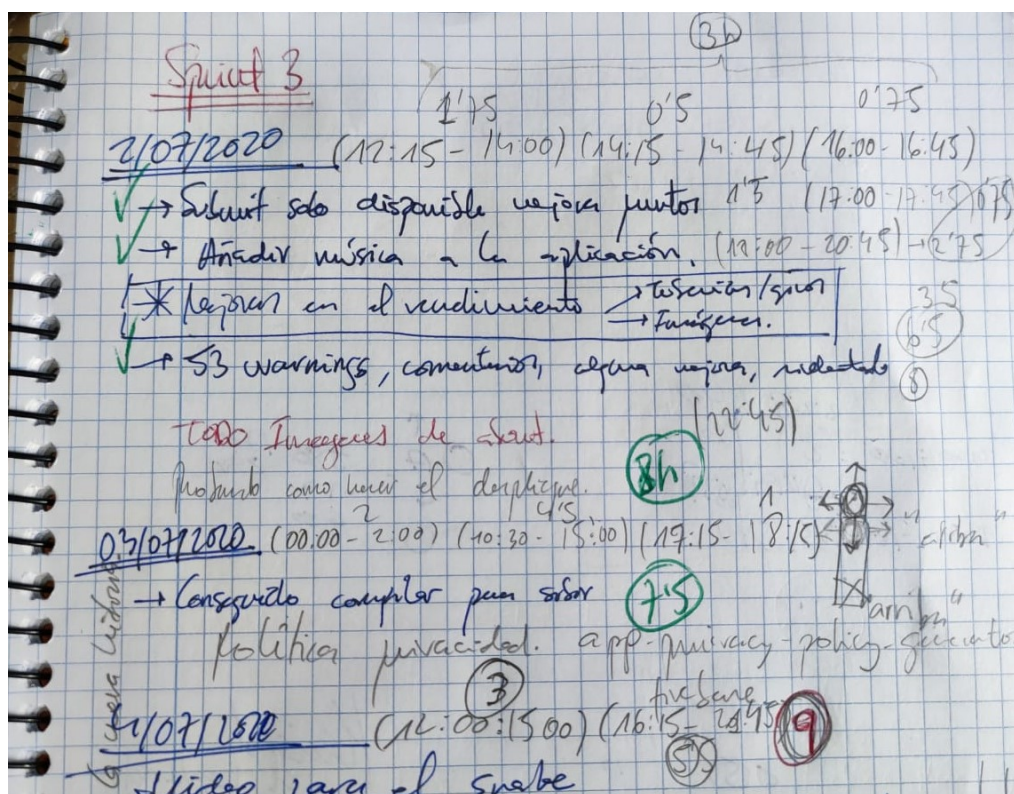 3h
Sprint 3
1'75 0'5 0'75
2/07/2020 (12:15 - 14:00) (14:15 - 14:45) (16:00 - 16:45)
→ Submit solo disponible mejora puntos 1'5 (17:00 - 17:45) 0'75
→ Añadir música a la aplicación. (18:00 - 20:45) → 2'75
* Mejoras en el rendimiento
→ Imágenes.
3'5
6'5
→ 53 warnings, comentarios, alguna mejora, indentado
8
(22:45)
TODO Imágenes de about.
Probando como hacer el despligue.
8h
2 4'5 1
03/07/2020 (00:00 - 2:00) (10:30 - 15:00) (17:15 - 18:15)
"arriba"
→ Conseguido compilar para subir 7'5
"arriba"
Política privacidad. app-privacy-policy-generato
3 firebase
4/07/2020 (12:00:1500) (16:15 - 9
5'5
Video para el